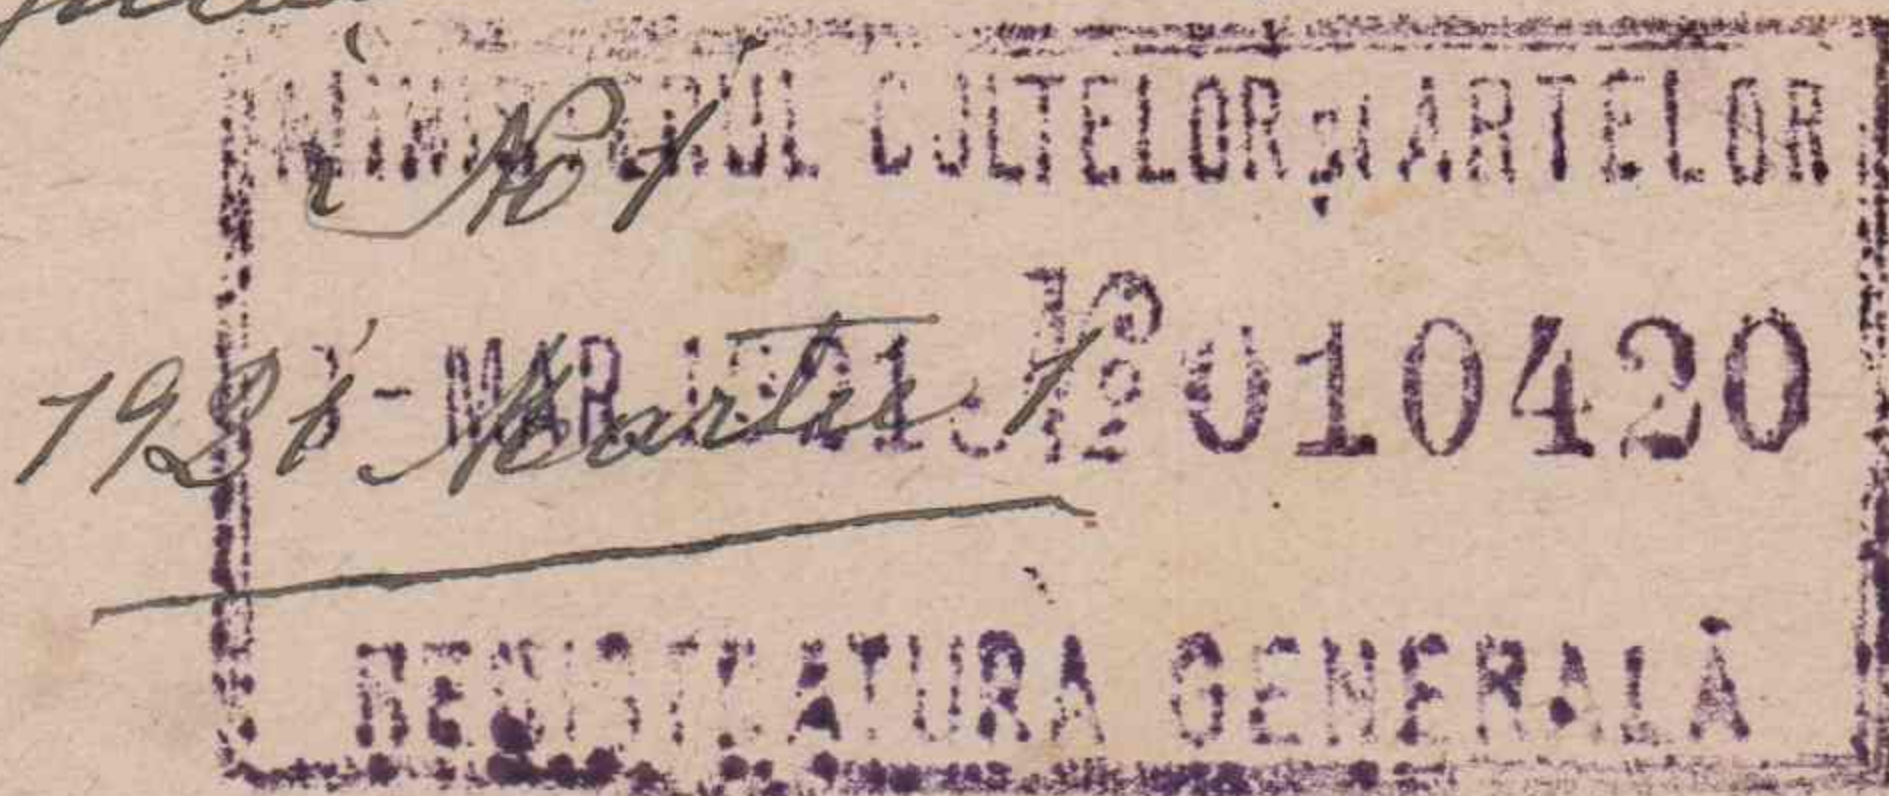 MINISTERUL CULTELOR și ARTELOR
No 1
- MAR 1921 No 010420
1921 Martie 1
REGISTRATURA GENERALĂ